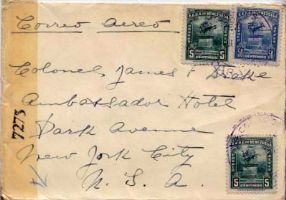 Correo Aereo
Colonel James Drake
Ambassador Hotel
Park Avenue
New York City
U. S. A.
7273
5
5